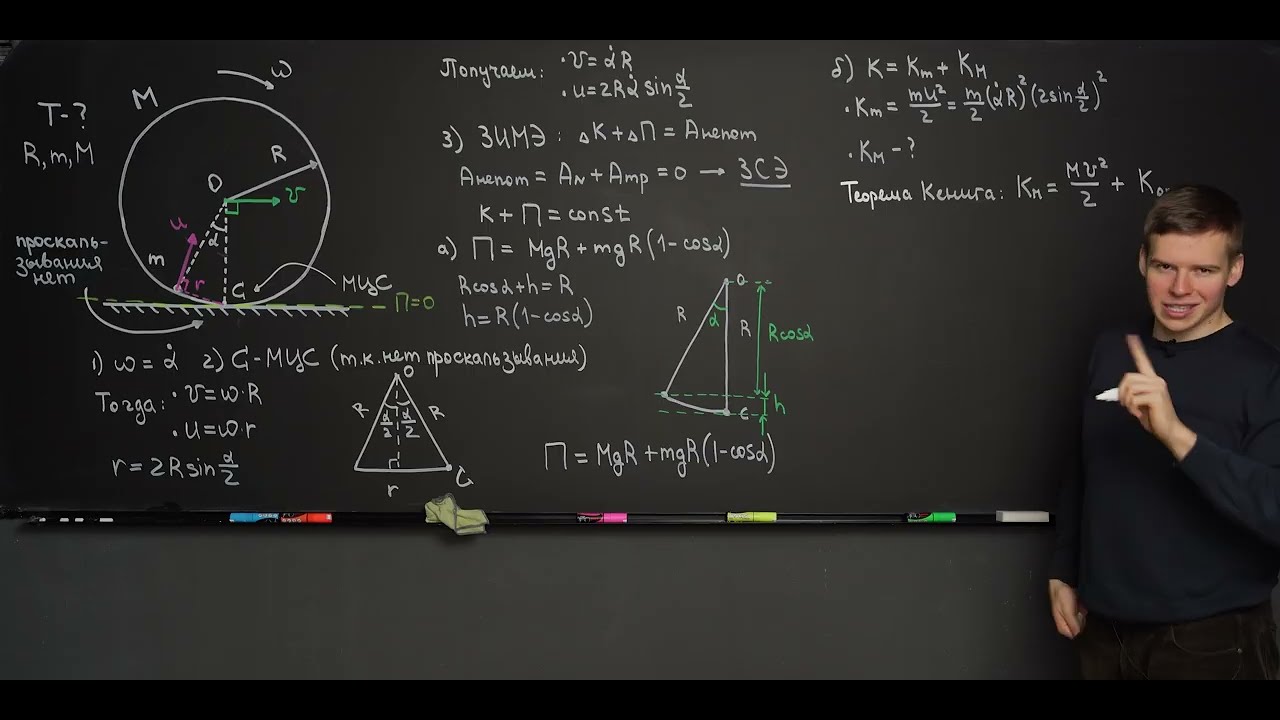 ω
M
T-?
R, m, M
R
O
v
u
α
m
r
проскаль-
зывания
нет
C
МЦС
П=0
1) ω = α̇
2) C-МЦС (т.к. нет проскальзывания)
Тогда: · v=ω·R
· u=ω·r
r = 2Rsin α/2
O
R
R
α/2
α/2
r
C
Получаем: · v = α̇R
· u=2Rα̇ sin α/2
3) ЗИМЭ: ΔK+ΔП = Aнепот
Aнепот = AN + Aтр = 0 → ЗСЭ
K + П = const
a) П = MgR + mgR(1-cosα)
Rcosα+h = R
h=R(1-cosα)
O
R
α
R
Rcosα
C
h
П = MgR+mgR(1-cosα)
б) K = Km + KM
· Km = mu²/2 = m/2 (α̇R)² (2sin α/2)²
· KM - ?
Теорема Кенига: KM = Mv²/2 +